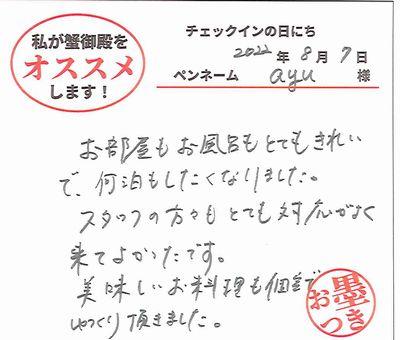 私が蟹御殿を
オススメ
します！
チェックインの日にち
2022年8月7日
ペンネーム ayu 様
お部屋もお風呂もとてもきれい
で、何泊もしたくなりました。
スタッフの方々もとても対応がよく
来てよかったです。
美味しいお料理も個室で
ゆっくり頂きました。
お墨
つき